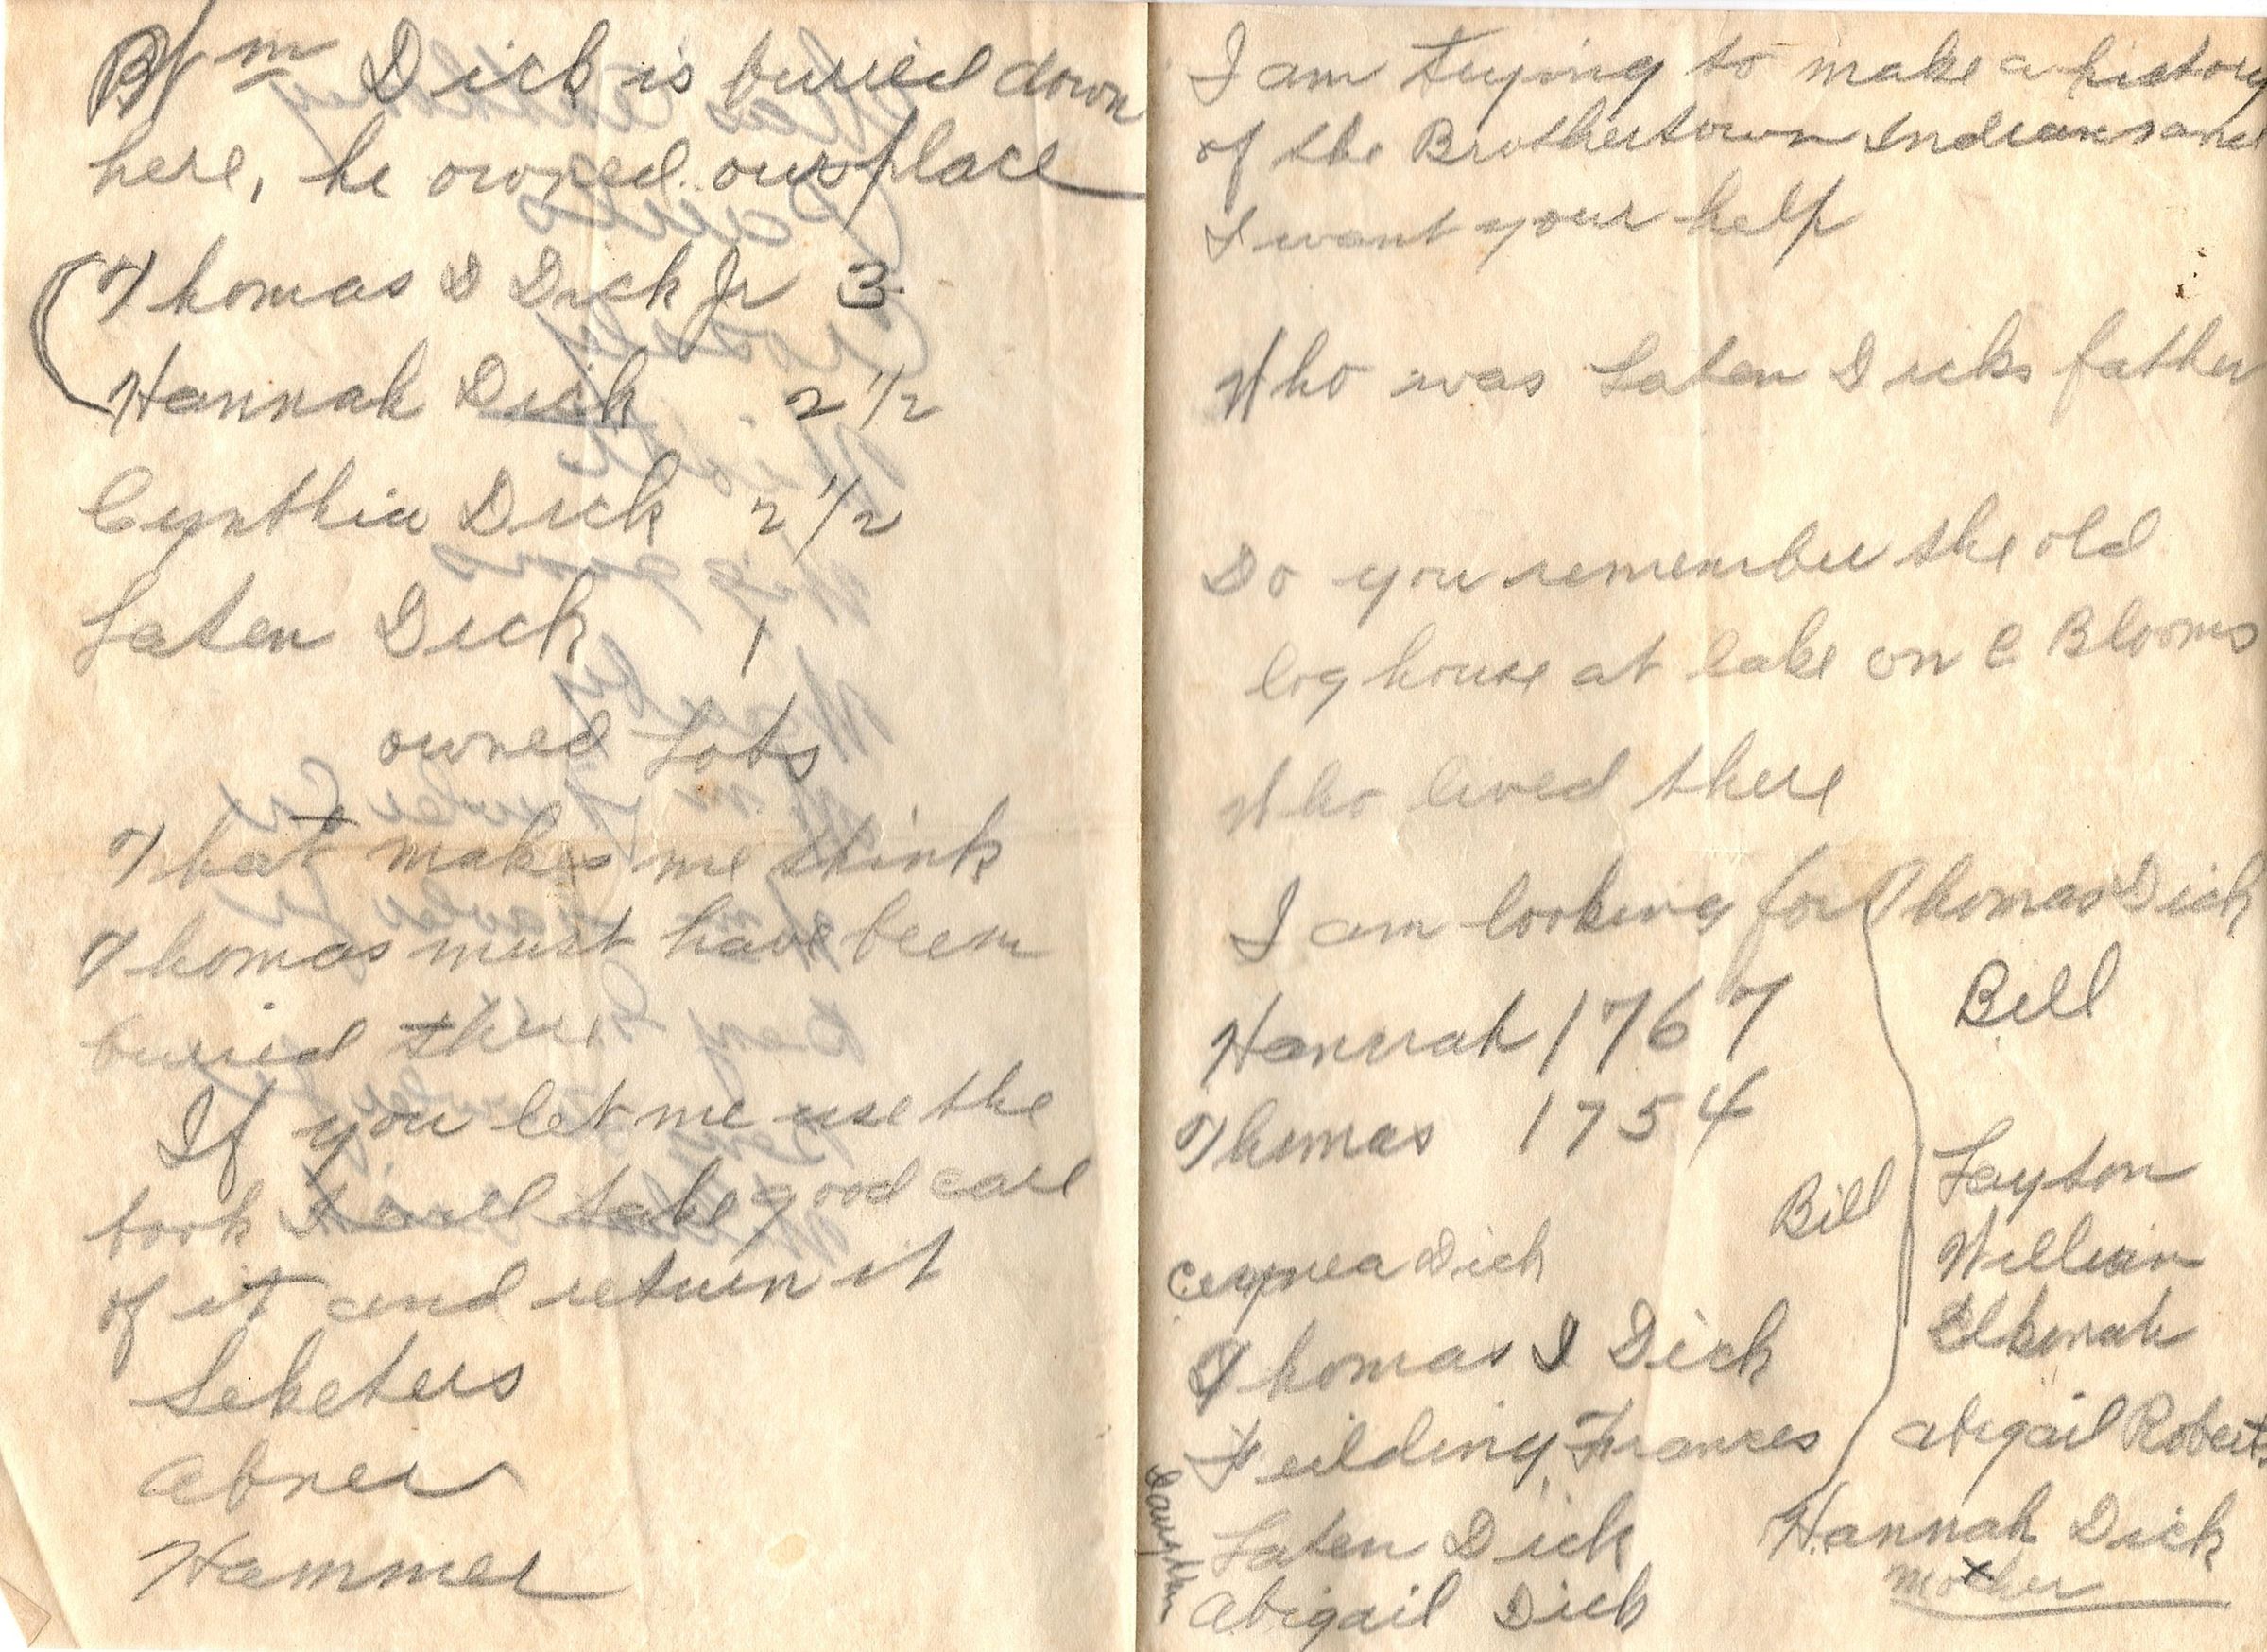 Wm Dick is buried down
here, he owned our place
Thomas D Dick Jr 3
Hannah Dick 2 1/2
Cynthia Dick 2 1/2
Laten Dick 1
owned Lots
That makes me think
Thomas must have been
buried there
If you let me use the
book I will take good care
of it and return it
Seketers
Abner
Hammer
I am trying to make a history
of the Brothertown Indians and
I want your help
Who was Laten Dicks father
Do you remember the old
log house at lake on C Blooms
Who lived there
I am looking for Thomas Dick
Bill
Hannah 1767
Thomas 1754
Bill
Layton
William
Elkenah
Abigail Roberts
Hannah Dick
mother
Dick
Thomas I Dick
Feilding Frances
Laten Dick
Abigail Dick
Daughter